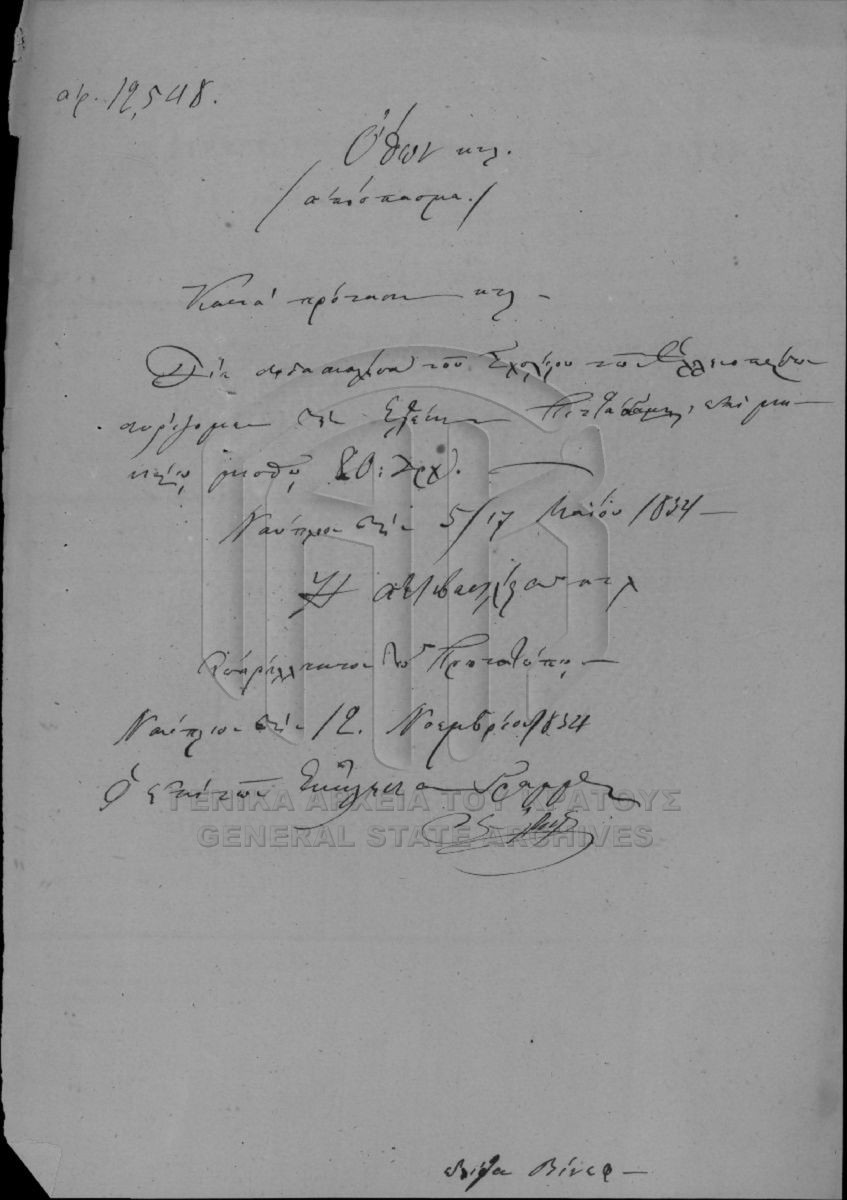 αρ. 12,548.
Ὄθων κτλ.
/απόσπασμα./
Κατά πρότασιν κτλ –
Διά διδασκάλισσα του Σχολείου των
διορίζομεν την Ελένην επί μη-
νιαίῳ μισθῷ 80: Δρχ. —
Ναύπλιον την 5/17 Μαΐου 1834 –
Η αντιβασιλεία κτλ
απαράλλακτον τῷ Πρωτοτύπῳ –
Ναύπλιον την 12. Νοεμβρίου 1834
Ο επί των Γραμμ
ΓΕΝΙΚΑ ΑΡΧΕΙΑ ΤΟΥ ΚΡΑΤΟΥΣ
GENERAL STATE ARCHIVES